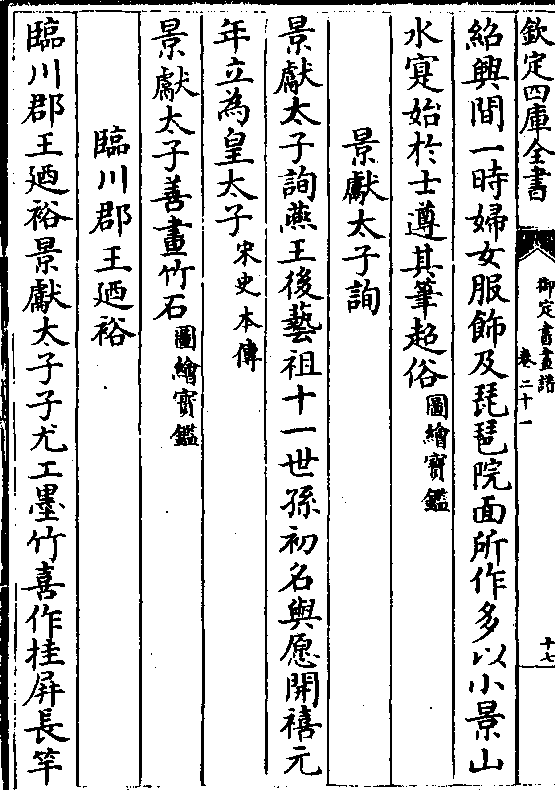 欽定四庫全書
御定書畫譜
卷二十一
十七
紹興間一時婦女服飾及琵琶院面所作多以小景山
水寔始於士遵其筆超俗圖繪寳鑑
景獻太子詢
景獻太子詢燕王後藝祖十一世孫初名與愿開禧元
年立為皇太子宋史本傳
景獻太子善畫竹石圖繪寳鑑
臨川郡王廼裕
臨川郡王廼裕景獻太子子尤工墨竹喜作桂屏長竿